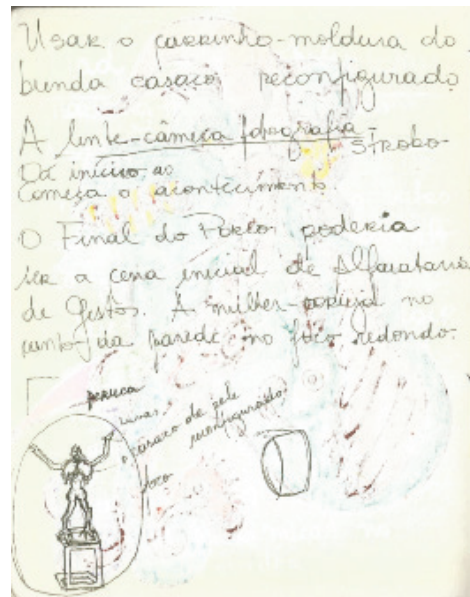 Usar o carrinho-moldura do
bunda casaco reconfigurado
A lente-câmera fotografia-
STROBO
Dá início ao
Começa o acontecimento.
O Final do Porco poderia
ser a cena inicial de Alfaiataria
de Gestos. A mulher-coruja no
canto da parede no foco redondo.
peruca
luvas
casaco de pele
reconfigurado
foco